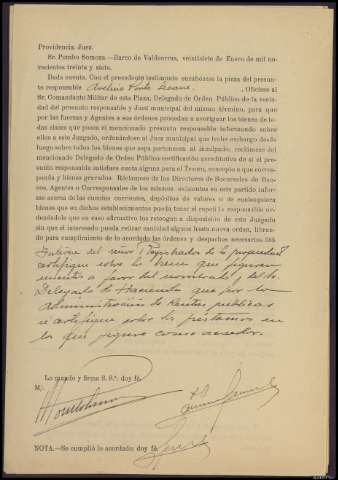 Providencia Juez.
Sr. Pombo Somoza.—Barco de Valdeorras, veintisiete de Enero de mil no-
vecientos treinta y siete.
Dada cuenta. Con el precedente testimonio encabécese la pieza del presun-
to responsable Avelino Pinto Seoane. Ofíciese al
Sr. Comandante Militar de esta Plaza, Delegado de Orden Público de la vecin-
dad del presunto responsable y Juez municipal del mismo término, para que
por las fuerzas y Agentes a sus órdenes procedan a averiguar los bienes de to-
das clases que posea el mencionado presunto responsable informando sobre
ellos a este Juzgado, ordenándose al Juez municipal que trabe embargo desde
luego sobre todos los bienes que sepa pertenezcan al inculpado; reclámese del
mencionado Delegado de Orden Público certificación acreditativa de si el pre-
sunto responsable satisface cuota alguna para el Tesoro, concepto a que corres-
ponda y bienes gravados. Reclámese de los Directores de Sucursales de Ban-
cos, Agentes o Corresponsales de los mismos existentes en este partido infor-
me acerca de las cuentas corrientes, depósitos de valores o de cualesquiera
bienes que en dichos establecimientos pueda tener el repetido responsable or-
denándoles que en caso afirmativo los retengan a disposición de este Juzgado
sin que el interesado pueda retirar cantidad alguna hasta nueva orden, librán-
dose para cumplimiento de lo acordado las órdenes y despachos necesarios.
Registrador de la propiedad
certifique sobre los bienes que figuren
a favor del nombrado del Sr.
Delegado de Hacienda que por la
administración de Rentas públicas
se certifique sobre los préstamos en
los que figure como acreedor.
Lo mandó y firma S. S.ª; doy fé.
M/
NOTA.—Se cumplió lo acordado; doy fé.